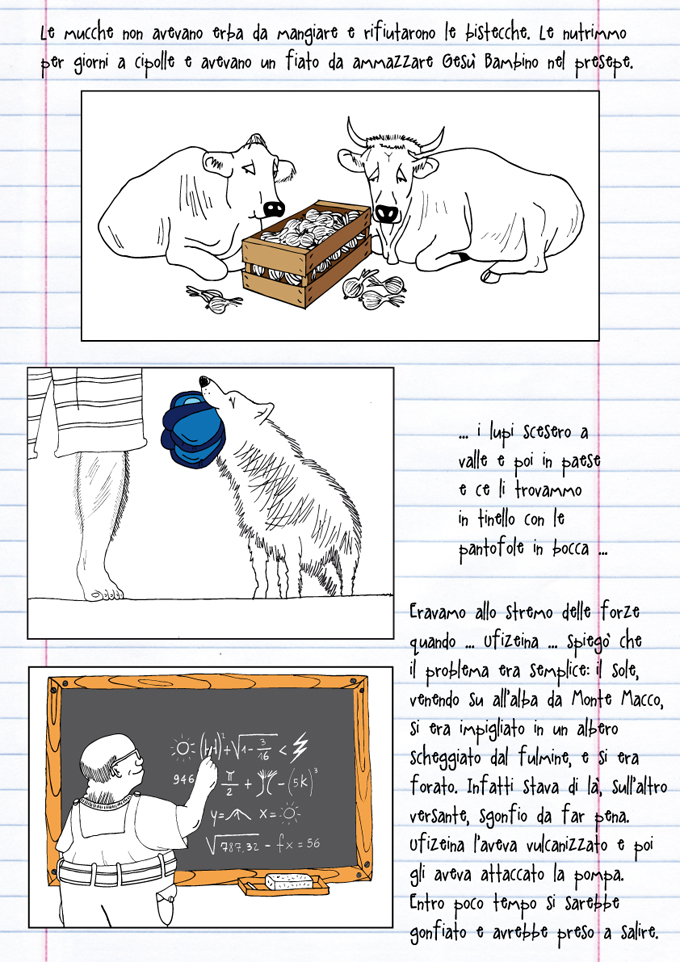 Le mucche non avevano erba da mangiare e rifiutarono le bistecche. Le nutrimmo
per giorni a cipolle e avevano un fiato da ammazzare Gesù Bambino nel presepe.
... i lupi scesero a
valle e poi in paese
e ce li trovammo
in tinello con le
pantofole in bocca ...
Eravamo allo stremo delle forze
quando ... Ufizeina ... spiegò che
il problema era semplice: il sole,
venendo su all'alba da Monte Macco,
si era impigliato in un albero
scheggiato dal fulmine, e si era
forato. Infatti stava di là, sull'altro
versante, sgonfio da far pena.
Ufizeina l'aveva vulcanizzato e poi
gli aveva attaccato la pompa.
Entro poco tempo si sarebbe
gonfiato e avrebbe preso a salire.
+√1-3/16 <
946 π/2 + -(5K)³
y= x=
√787.32 - fx = 56